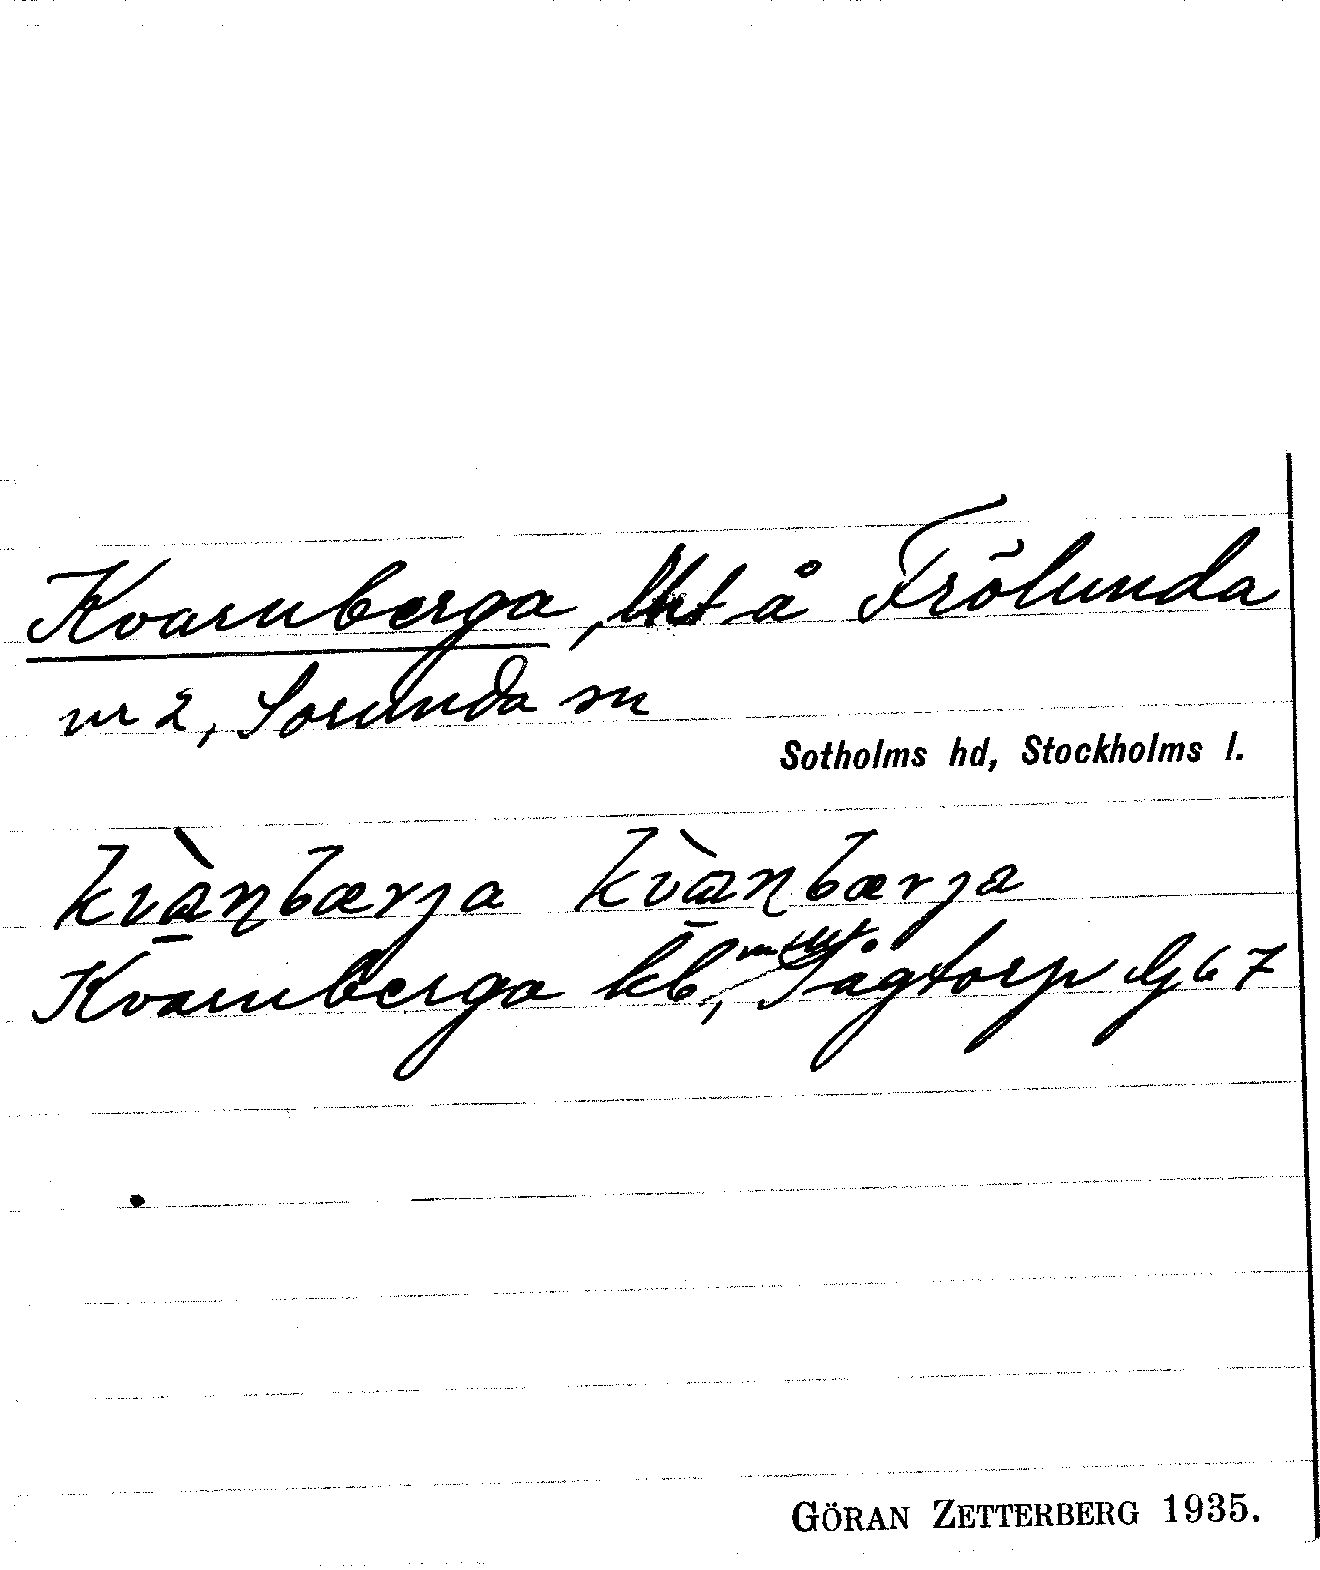 Kvarnberga, lht å Frölunda
nr 2, Sorunda sn
Sotholms hd, Stockholms l.
kvànbærja kvànbærja
Kvarnberga kb, Tågtorp lg 67
GÖRAN ZETTERBERG 1935.